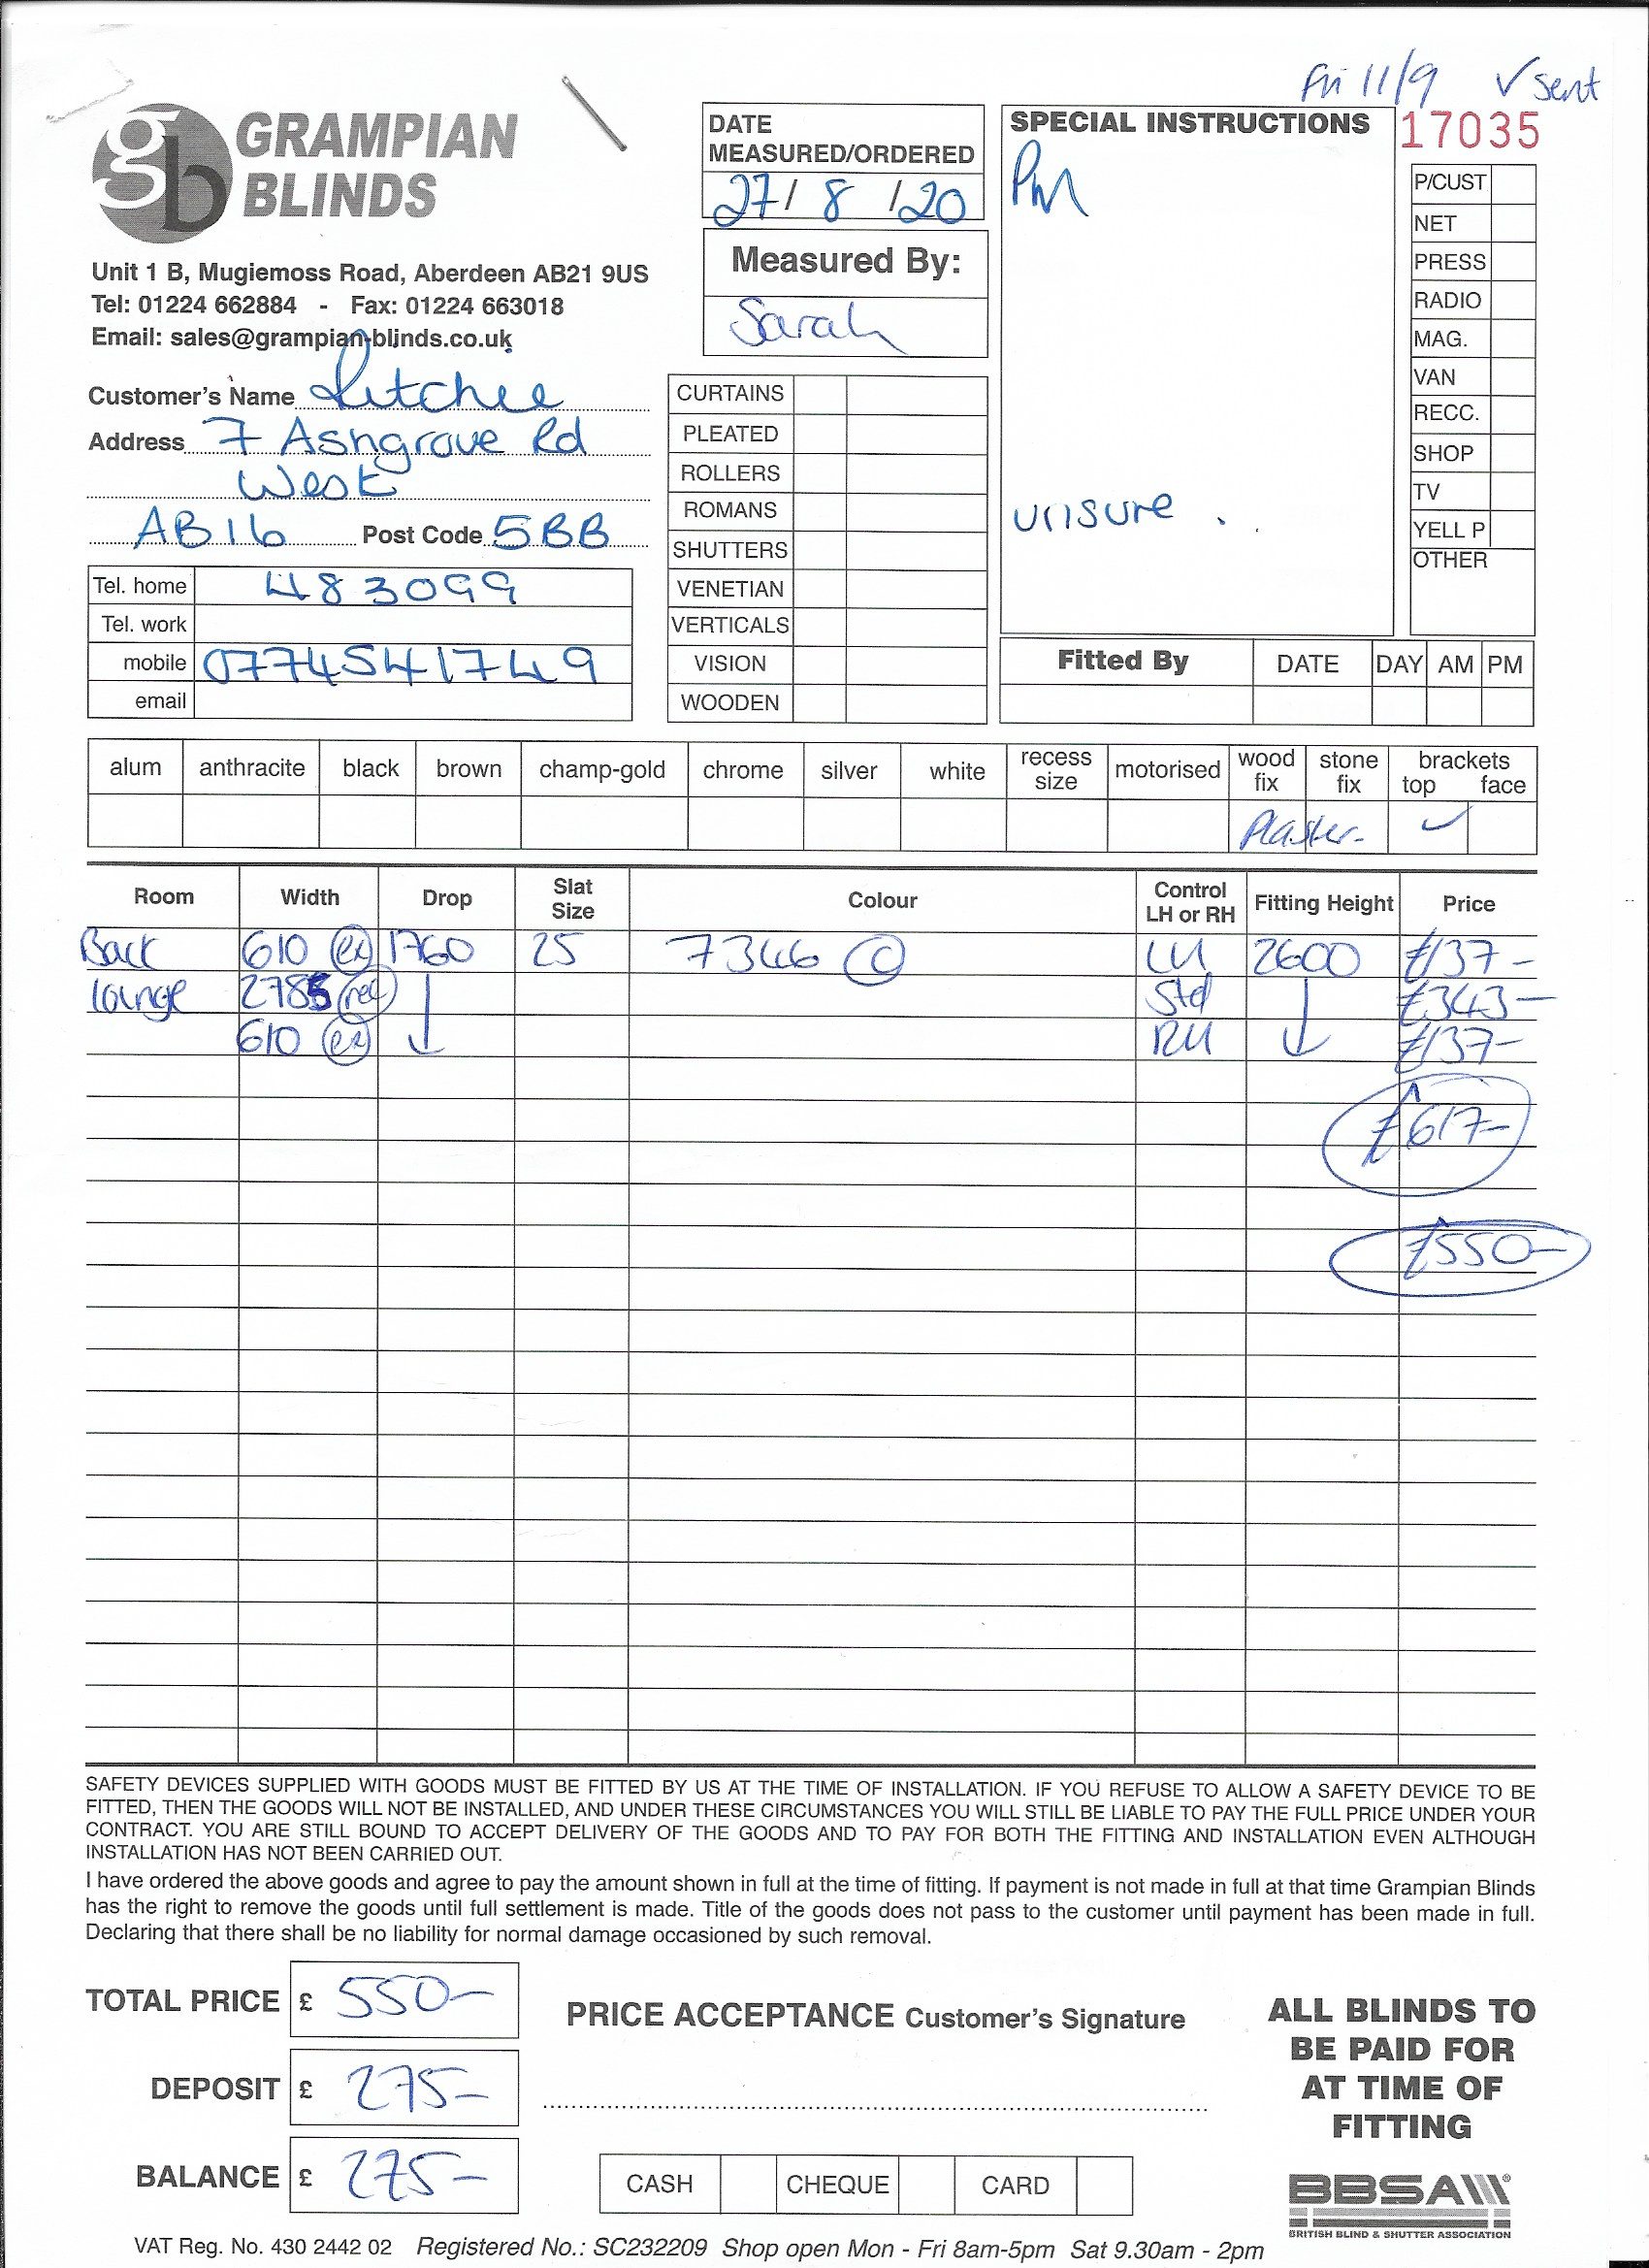 Fri 11/9 ✓ sent
GRAMPIAN
BLINDS
Unit 1 B, Mugiemoss Road, Aberdeen AB21 9US
Tel: 01224 662884 - Fax: 01224 663018
Email: sales@grampian-blinds.co.uk
DATE
MEASURED/ORDERED
27/ 8 /20
Measured By:
Sarah
SPECIAL INSTRUCTIONS
PM
unsure .
17035
P/CUST
NET
PRESS
RADIO
MAG.
VAN
RECC.
SHOP
TV
YELL P
OTHER
Customer's Name Ritchie
Address 7 Ashgrove Rd
West
AB16 Post Code 5BB
Tel. home 483099
Tel. work
mobile 0774541749
email
CURTAINS
PLEATED
ROLLERS
ROMANS
SHUTTERS
VENETIAN
VERTICALS
VISION
WOODEN
Fitted By DATE DAY AM PM
alum anthracite black brown champ-gold chrome silver white recess size motorised wood fix stone fix brackets top face
Plaster ✓
Room Width Drop Slat Size Colour Control LH or RH Fitting Height Price
Back 610 (ex) 1760 25 7346 (C) LH 2600 £137-
lounge 2785 (rec) Std £343-
610 (ex) RH £137-
£617-
£550-
SAFETY DEVICES SUPPLIED WITH GOODS MUST BE FITTED BY US AT THE TIME OF INSTALLATION. IF YOU REFUSE TO ALLOW A SAFETY DEVICE TO BE
FITTED, THEN THE GOODS WILL NOT BE INSTALLED, AND UNDER THESE CIRCUMSTANCES YOU WILL STILL BE LIABLE TO PAY THE FULL PRICE UNDER YOUR
CONTRACT. YOU ARE STILL BOUND TO ACCEPT DELIVERY OF THE GOODS AND TO PAY FOR BOTH THE FITTING AND INSTALLATION EVEN ALTHOUGH
INSTALLATION HAS NOT BEEN CARRIED OUT.
I have ordered the above goods and agree to pay the amount shown in full at the time of fitting. If payment is not made in full at that time Grampian Blinds
has the right to remove the goods until full settlement is made. Title of the goods does not pass to the customer until payment has been made in full.
Declaring that there shall be no liability for normal damage occasioned by such removal.
TOTAL PRICE £ 550-
DEPOSIT £ 275-
BALANCE £ 275-
PRICE ACCEPTANCE Customer's Signature
CASH CHEQUE CARD
ALL BLINDS TO
BE PAID FOR
AT TIME OF
FITTING
BBSA
BRITISH BLIND & SHUTTER ASSOCIATION
VAT Reg. No. 430 2442 02 Registered No.: SC232209 Shop open Mon - Fri 8am-5pm Sat 9.30am - 2pm